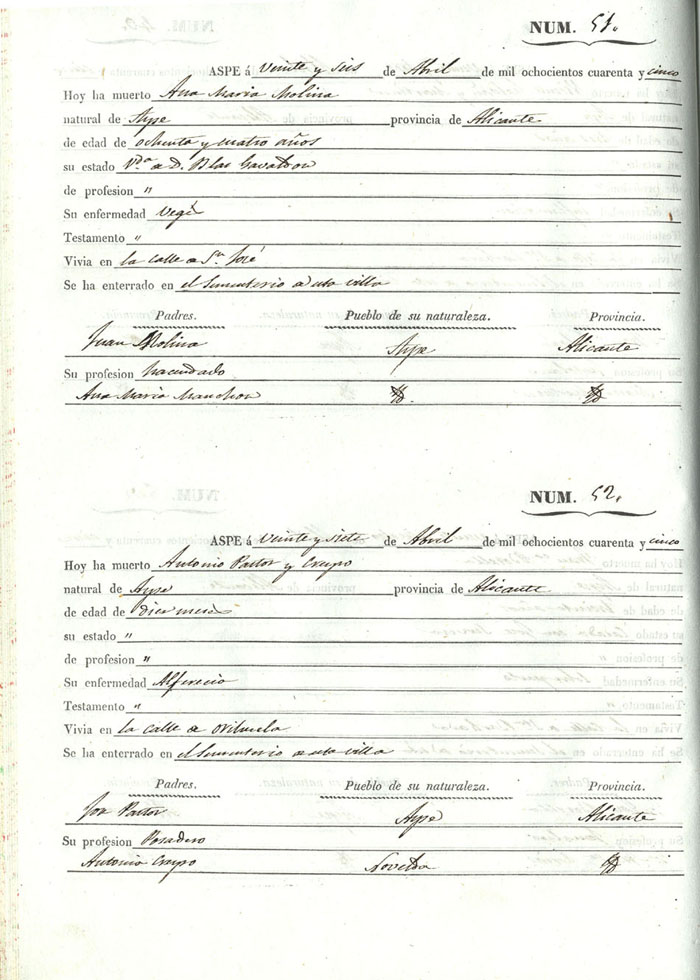 NUM. 51.
ASPE á Veinte y Seis de Abril de mil ochocientos cuarenta y cinco
Hoy ha muerto Ana Maria Molina
natural de Aspe provincia de Alicante
de edad de ochenta y cuatro años
su estado Vda. de D. Blas
de profesion "
Su enfermedad Vegéz
Testamento "
Vivia en la calle de Sn. José
Se ha enterrado en el Sementerio de esta villa
Padres. Pueblo de su naturaleza. Provincia.
Juan Molina Aspe Alicante
Su profesion hacendado
Ana Maria Manchon
NUM. 52.
ASPE á Veinte y siete de Abril de mil ochocientos cuarenta y cinco
Hoy ha muerto Antonio Pastor y Crespo
natural de Aspe provincia de Alicante
de edad de diez meses
su estado "
de profesion "
Su enfermedad Alferecia
Testamento "
Vivia en la calle de Orihuela
Se ha enterrado en el Sementerio de esta villa
Padres. Pueblo de su naturaleza. Provincia.
Pastor Aspe Alicante
Su profesion Posadero
Antonia Crespo Novelda